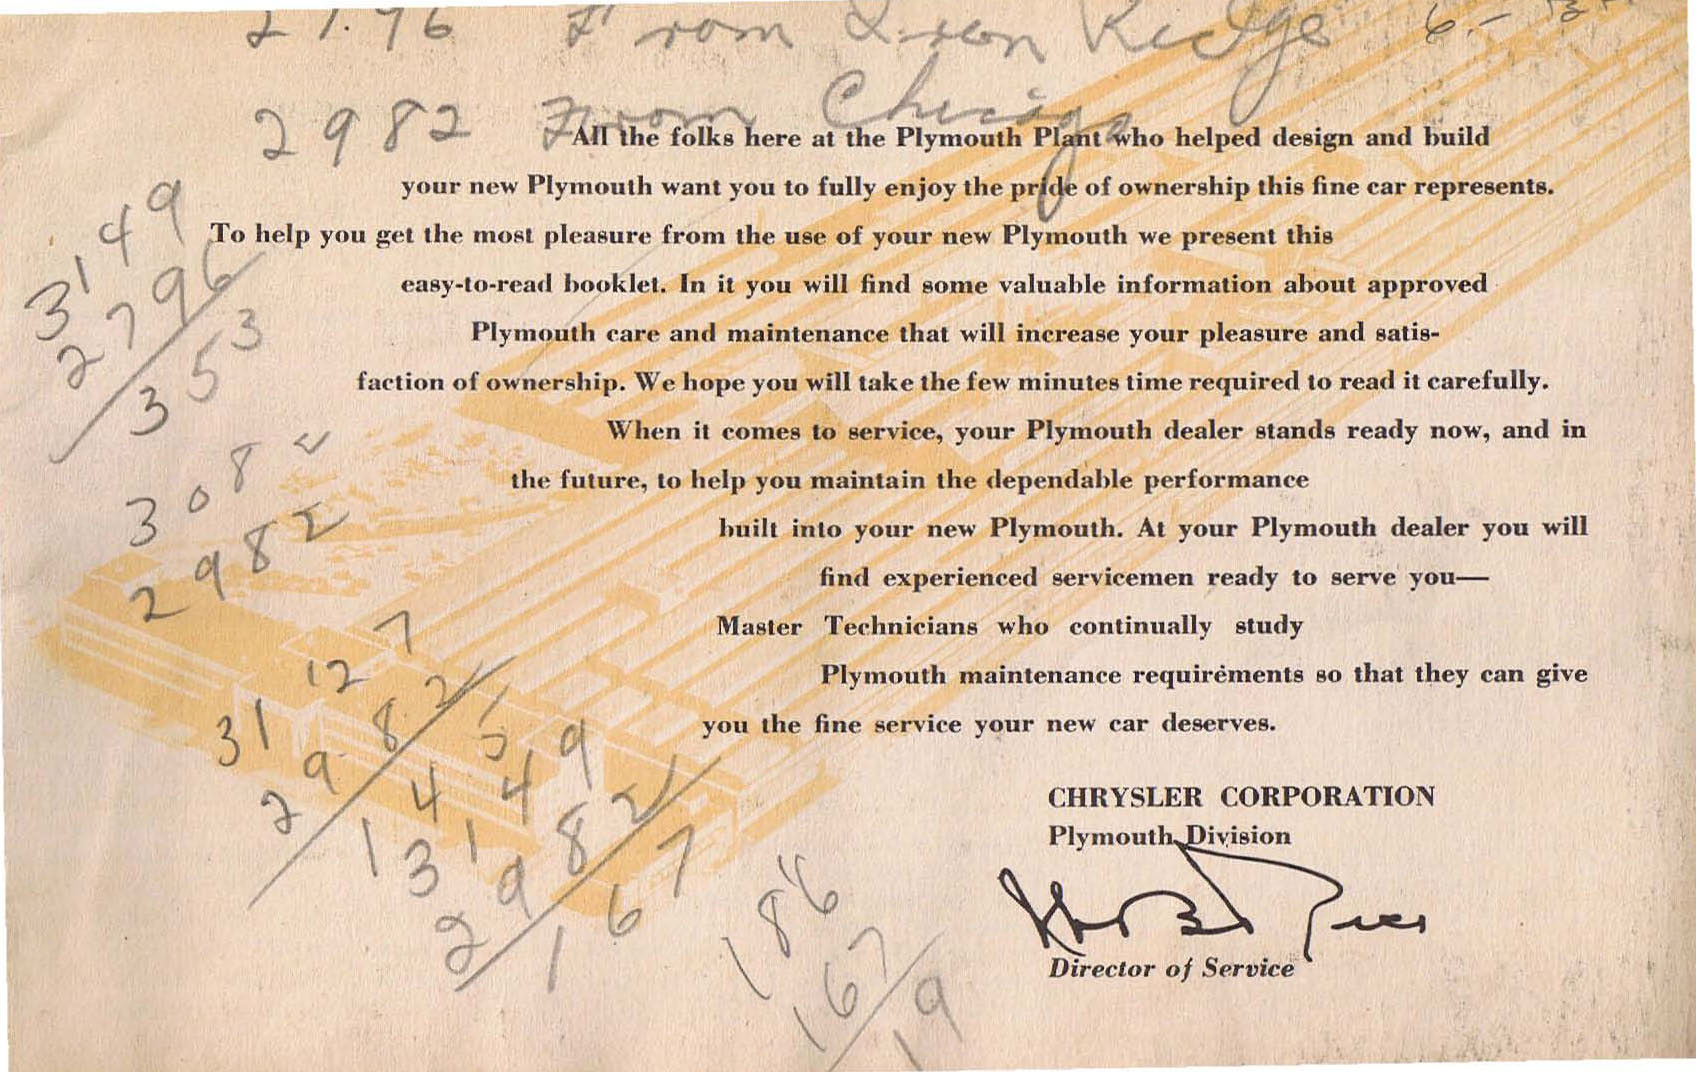 2796 From Iron Ridge 6-
2982 From Chicago
All the folks here at the Plymouth Plant who helped design and build
your new Plymouth want you to fully enjoy the pride of ownership this fine car represents.
To help you get the most pleasure from the use of your new Plymouth we present this
easy-to-read booklet. In it you will find some valuable information about approved
Plymouth care and maintenance that will increase your pleasure and satis-
faction of ownership. We hope you will take the few minutes time required to read it carefully.
When it comes to service, your Plymouth dealer stands ready now, and in
the future, to help you maintain the dependable performance
built into your new Plymouth. At your Plymouth dealer you will
find experienced servicemen ready to serve you—
Master Technicians who continually study
Plymouth maintenance requirements so that they can give
you the fine service your new car deserves.
CHRYSLER CORPORATION
Plymouth Division
Director of Service
3149
2796
353
3082
2982
3127
2982
145
3149
2982
167
186
167
19